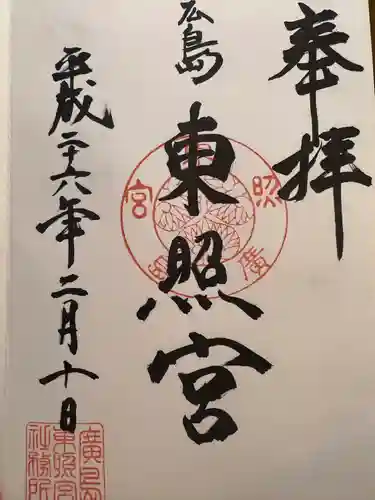 奉拝
広島
東照宮
平成二十六年二月十日
照
宮
廣
廣島
東照宮
社務所